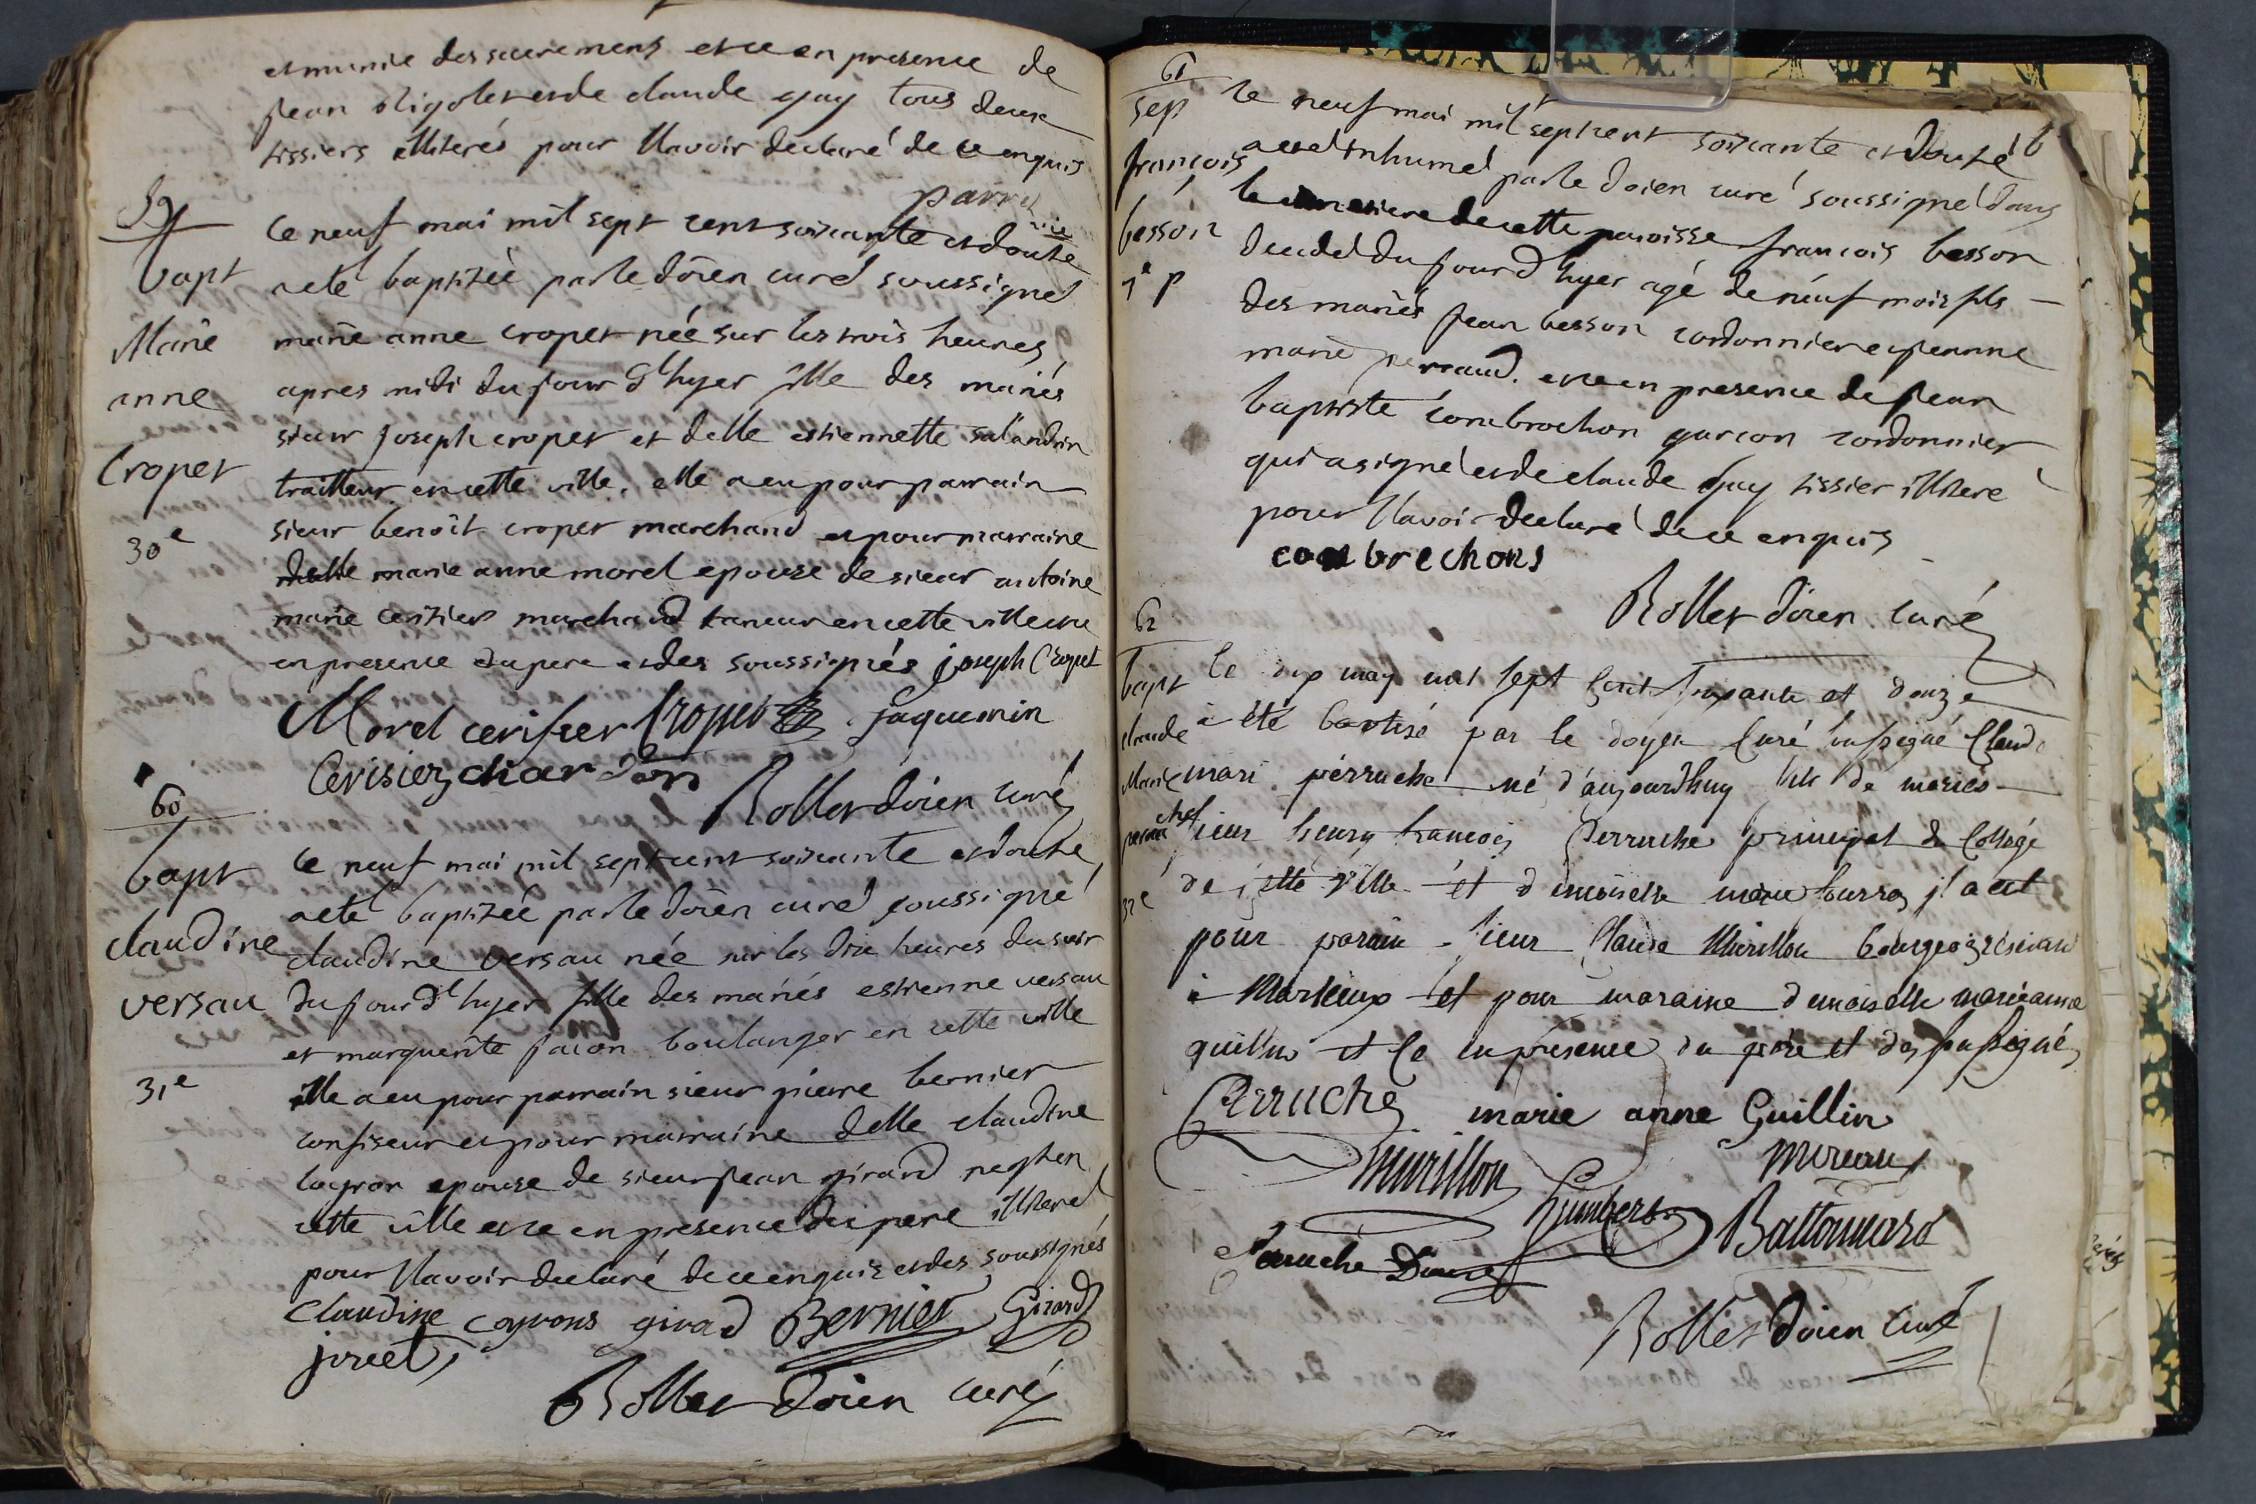 et munie des sacremens et ce en presence de
jean oligolet et de claude guy tous deux
tissiers illiterés pour l'avoir declaré de ce enquis
59
bapt
Marie
anne
Croper
30e
le neuf mai mil sept cent soixante et douze
a eté baptizée par le doïen curé soussigné
marie anne croper née sur les trois heures
apres midi du jour d'hyer fille des mariés
sieur joseph croper et delle estiennette salandrin
traitteur en cette ville. elle a eu pour parrain
sieur benoît croper marchand et pour marraine
delle marie anne morel epouse de sieur antoine
marie cerisier marchand taneur en cette ville et ce
en presence du pere et des soussignés joseph Croper
Morel cerisier Croper jaquemin
Cerisier chardon
Rollet doïen curé
60
bapt
claudine
versau
31e
le neuf mai mil sept cent soixante et douze
a eté baptizée par le doïen curé soussigné
claudine versau née sur les dix heures du soir
du jour d'hyer fille des mariés estienne versau
et marguerite boulanger en cette ville
elle a eu pour parrain sieur pierre bernier
confiseur et pour marraine delle claudine
coyron epouse de sieur jean girard
cette ville et ce en presence du pere illiteré
pour l'avoir declaré de ce enquis et des soussignés
claudine coyrons girad Bernier Girard
Rollet doïen curé
61
sep
francois
besson
1e p
le neuf mai mil sept cent soixante et douze
a eté inhumé par le doïen curé soussigné dans
le cimetiere de cette paroisse francois besson
decedé du jour d'hyer agé de neuf mois fils
des mariés jean besson cordonnier et jeanne
marie perraud. et ce en presence de jean
baptiste combrochon garcon cordonnier
qui a signé et de claude guy tissier illiteré
pour l'avoir declaré de ce enquis
combrechons
Rollet doïen curé
62
bapt
claude
Marie
perruche
32e
le dix may mil sept cent soixante et douze
à été baptisé par le doyen curé soussigné Claude
mari perruche né d'aujourdhuy fils de mariés
sieur henry francois Perruche principal du Collége
de cette ville et demoiselle il a eut
pour parain sieur Claude Murillon bourgeois résidant
à Marlieux et pour maraine demoiselle marieanne
guillin et ce en présence du père et des soussignés
Perruche marie anne Guillin
Murillon moreau
humbert Battonnard
Perruche
Rollet doïen curé